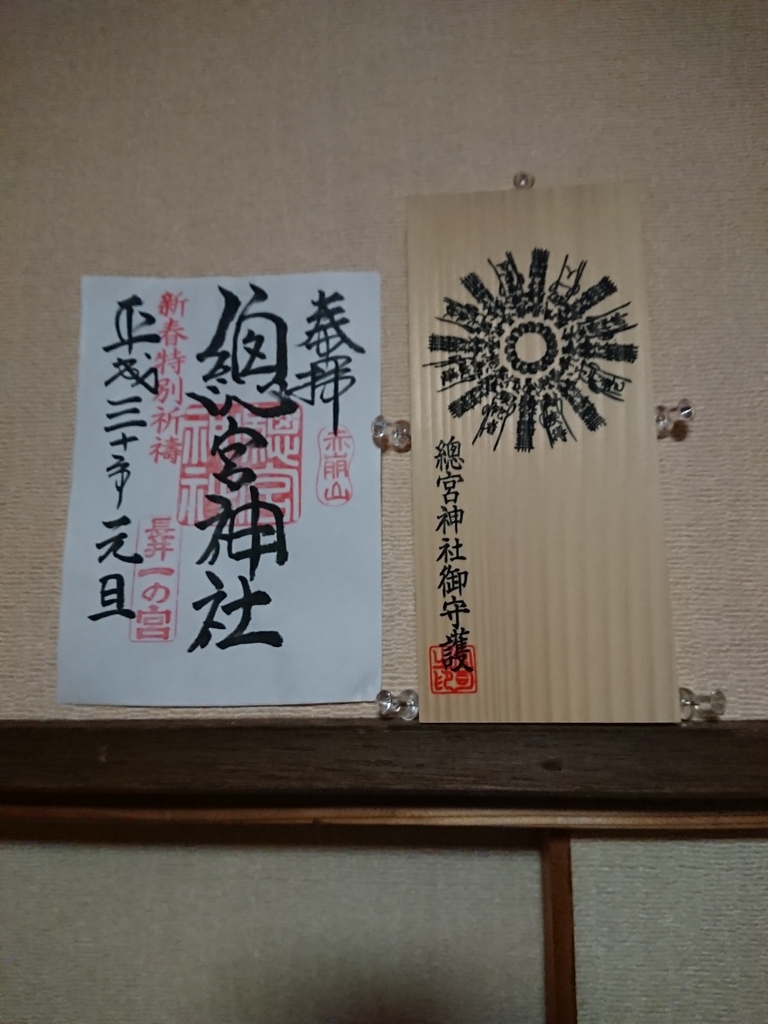 奉拝
赤崩山
總宮神社
總宮神社
新春特別祈祷
長井一の宮
平成三十年元旦
總宮神社御守護